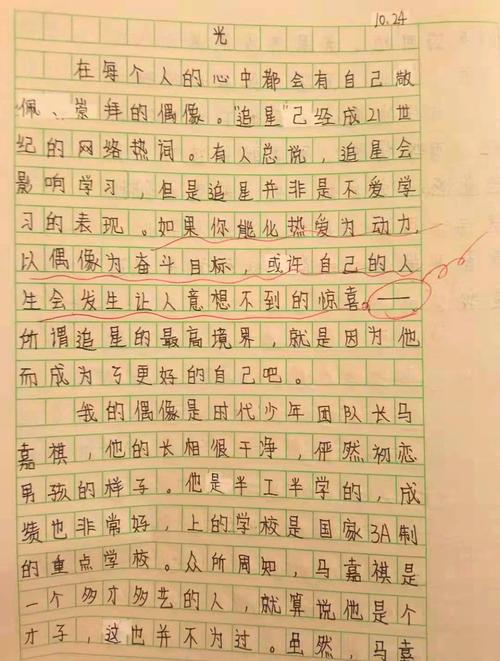 10.24
光
在每个人的心中都会有自己敬
佩、崇拜的偶像。“追星”已经成21世
纪的网络热词。有人总说，追星会
影响学习，但是追星并非是不爱学
习的表现。如果你能化热爱为动力
以偶像为奋斗目标，或许自己的人
生会发生让人意想不到的惊喜。——
所谓追星的最高境界，就是因为他
而成为了更好的自己吧。
我的偶像是时代少年团队长马
嘉祺，他的长相很干净，俨然初恋
男孩的样子。他是半工半学的，成
绩也非常好，上的学校是国家3A制
的重点学校。众所周知，马嘉祺是
一个多才多艺的人，就算说他是个
才子，这也并不为过。虽然，马嘉